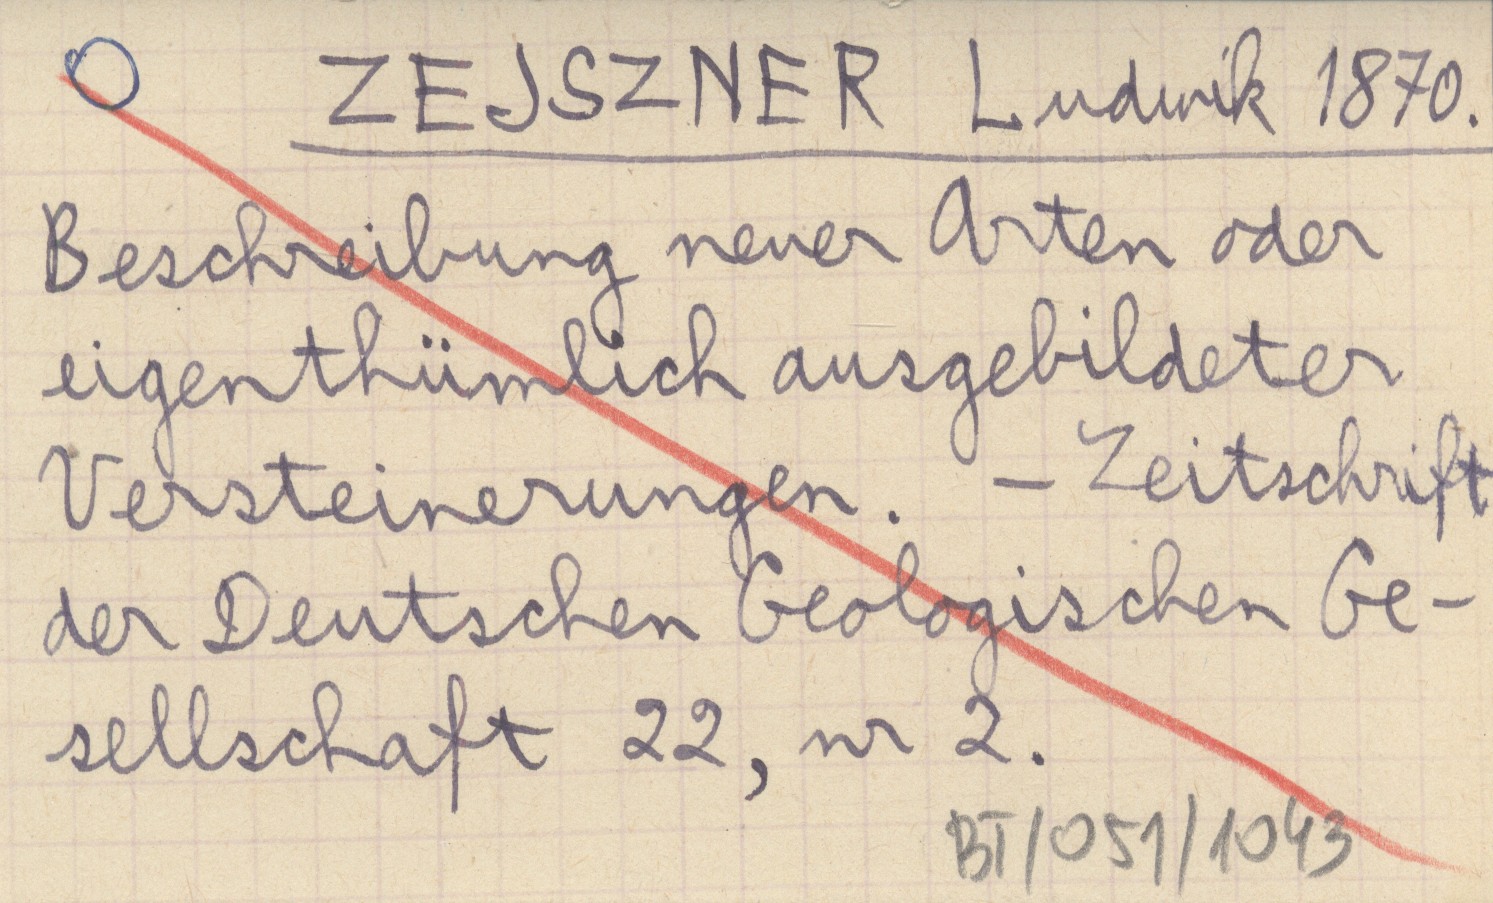 ZEJSZNER Ludwik 1870.
Beschreibung neuer Arten oder
eigenthümlich ausgebildeter
Versteinerungen. – Zeitschrift
der Deutschen Geologischen Ge-
sellschaft 22, nr 2.
BT/051/1043